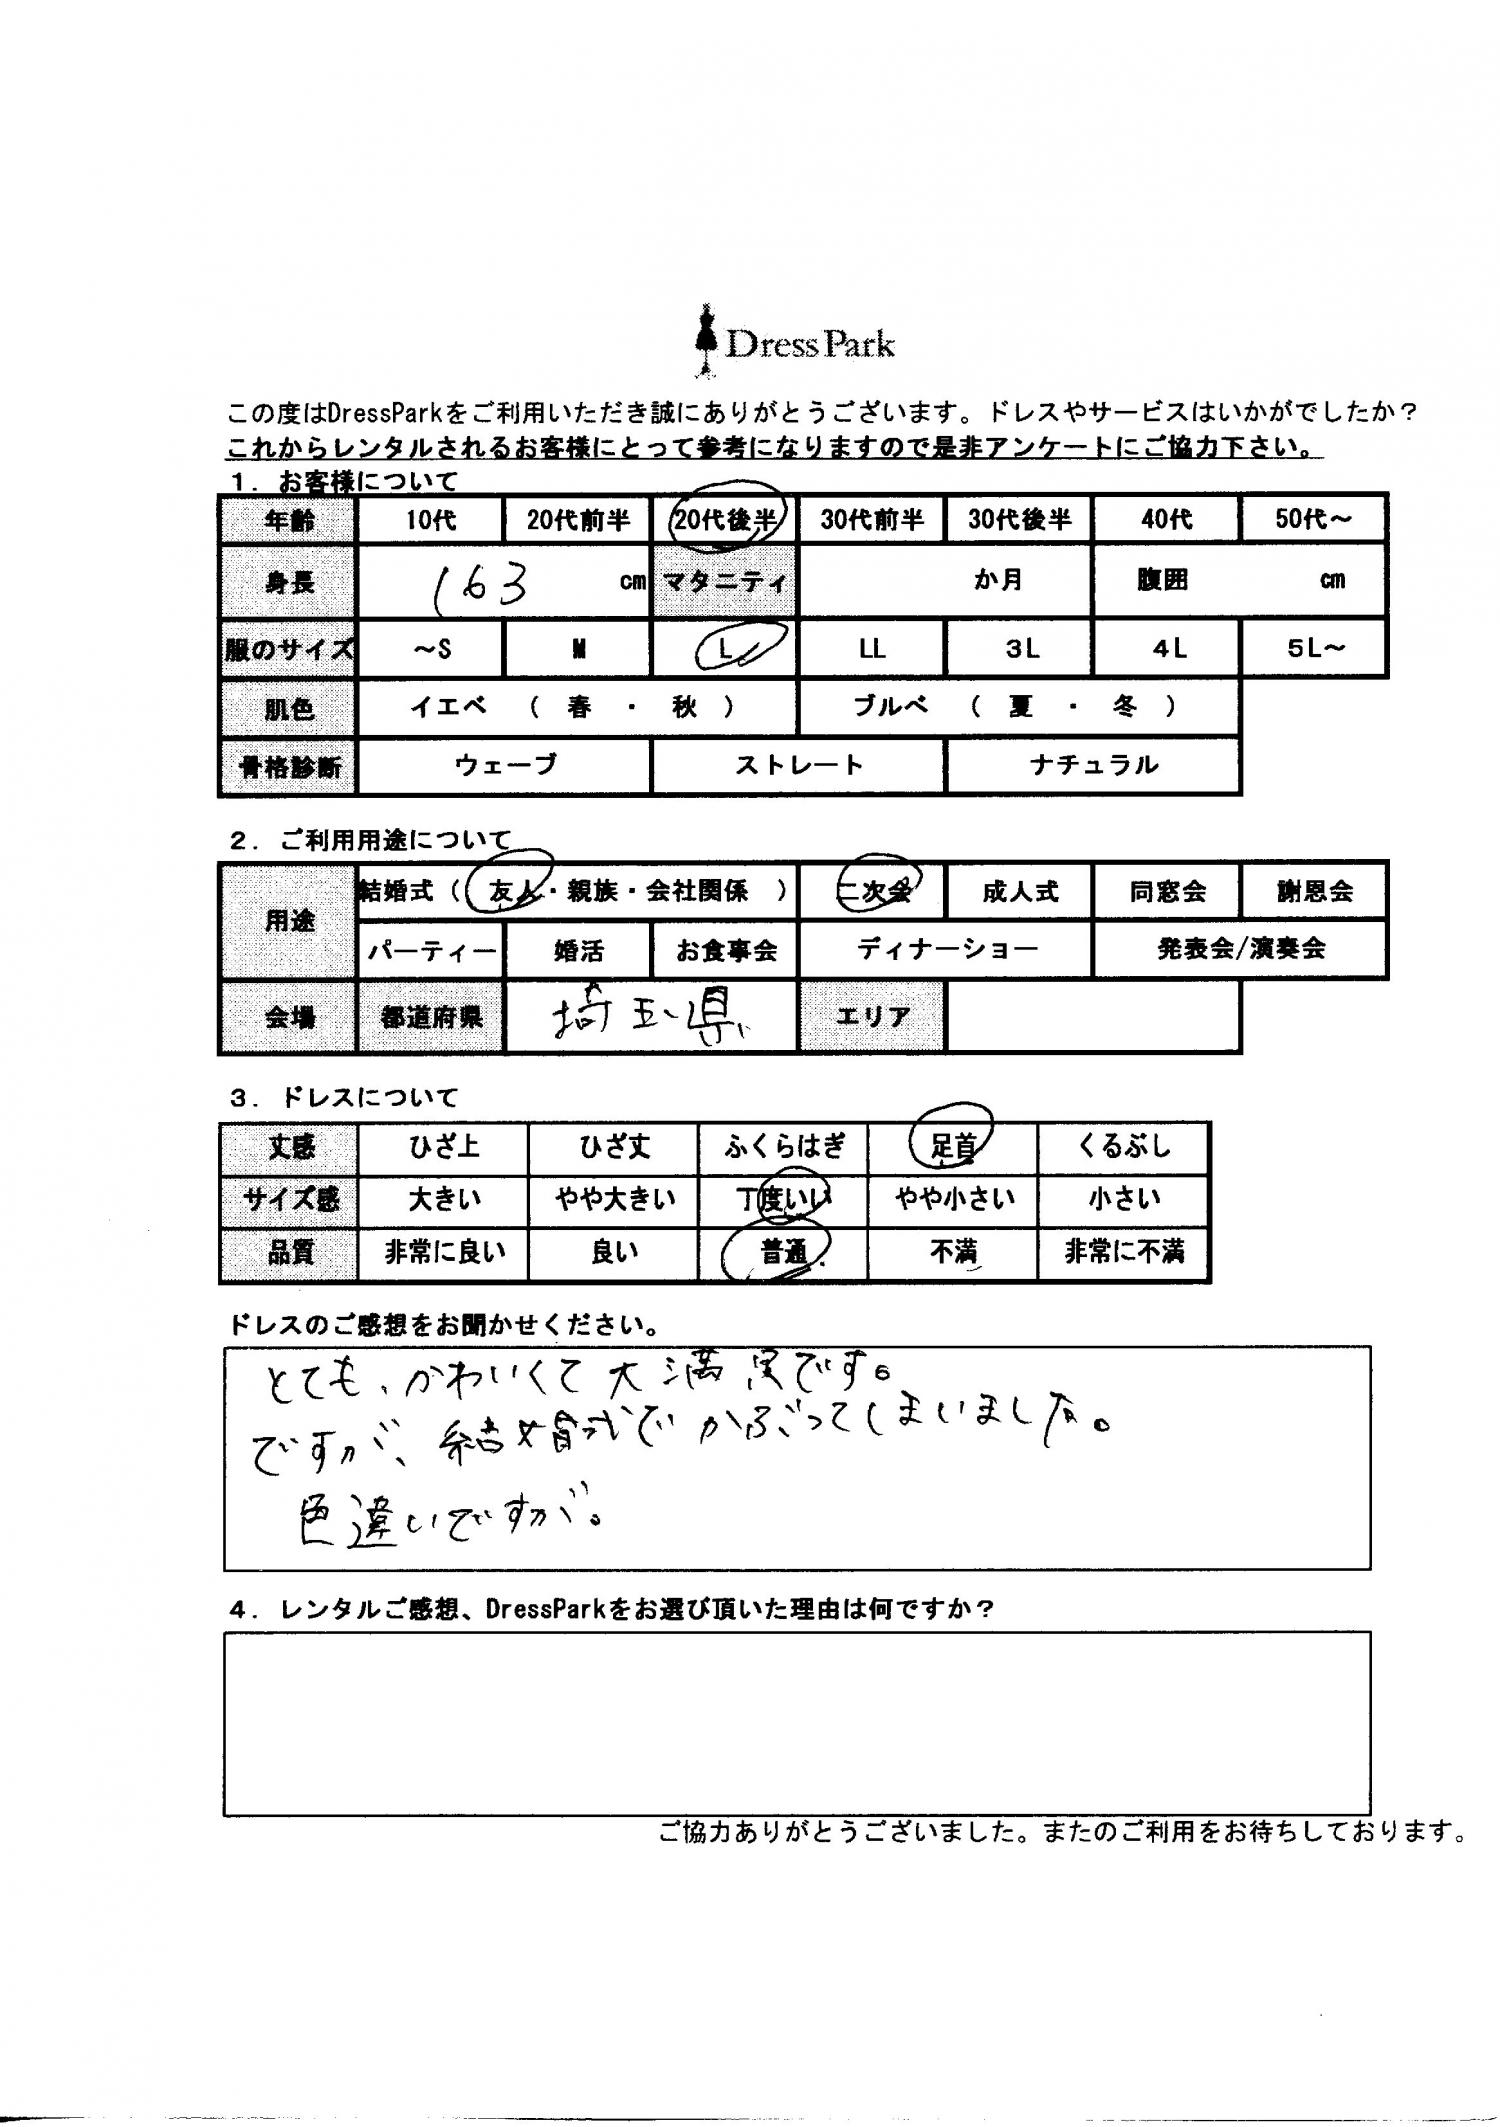 Dress Park
この度はDressParkをご利用いただき誠にありがとうございます。ドレスやサービスはいかがでしたか？
これからレンタルされるお客様にとって参考になりますので是非アンケートにご協力下さい。
１．お客様について
年齢 10代 20代前半 20代後半 30代前半 30代後半 40代 50代～
身長 163 cm マタニティ か月 腹囲 cm
服のサイズ ～S M L LL 3L 4L 5L～
肌色 イエベ （ 春 ・ 秋 ） ブルベ （ 夏 ・ 冬 ）
骨格診断 ウェーブ ストレート ナチュラル
２．ご利用用途について
用途 結婚式（ 友人・親族・会社関係 ） 二次会 成人式 同窓会 謝恩会
パーティー 婚活 お食事会 ディナーショー 発表会/演奏会
会場 都道府県 埼玉県 エリア
３．ドレスについて
丈感 ひざ上 ひざ丈 ふくらはぎ 足首 くるぶし
サイズ感 大きい やや大きい 丁度いい やや小さい 小さい
品質 非常に良い 良い 普通 不満 非常に不満
ドレスのご感想をお聞かせください。
とても、かわいくて大満足です。
ですが、結婚式でかぶってしまいました。
色違いですが。
４．レンタルご感想、DressParkをお選び頂いた理由は何ですか？
ご協力ありがとうございました。またのご利用をお待ちしております。